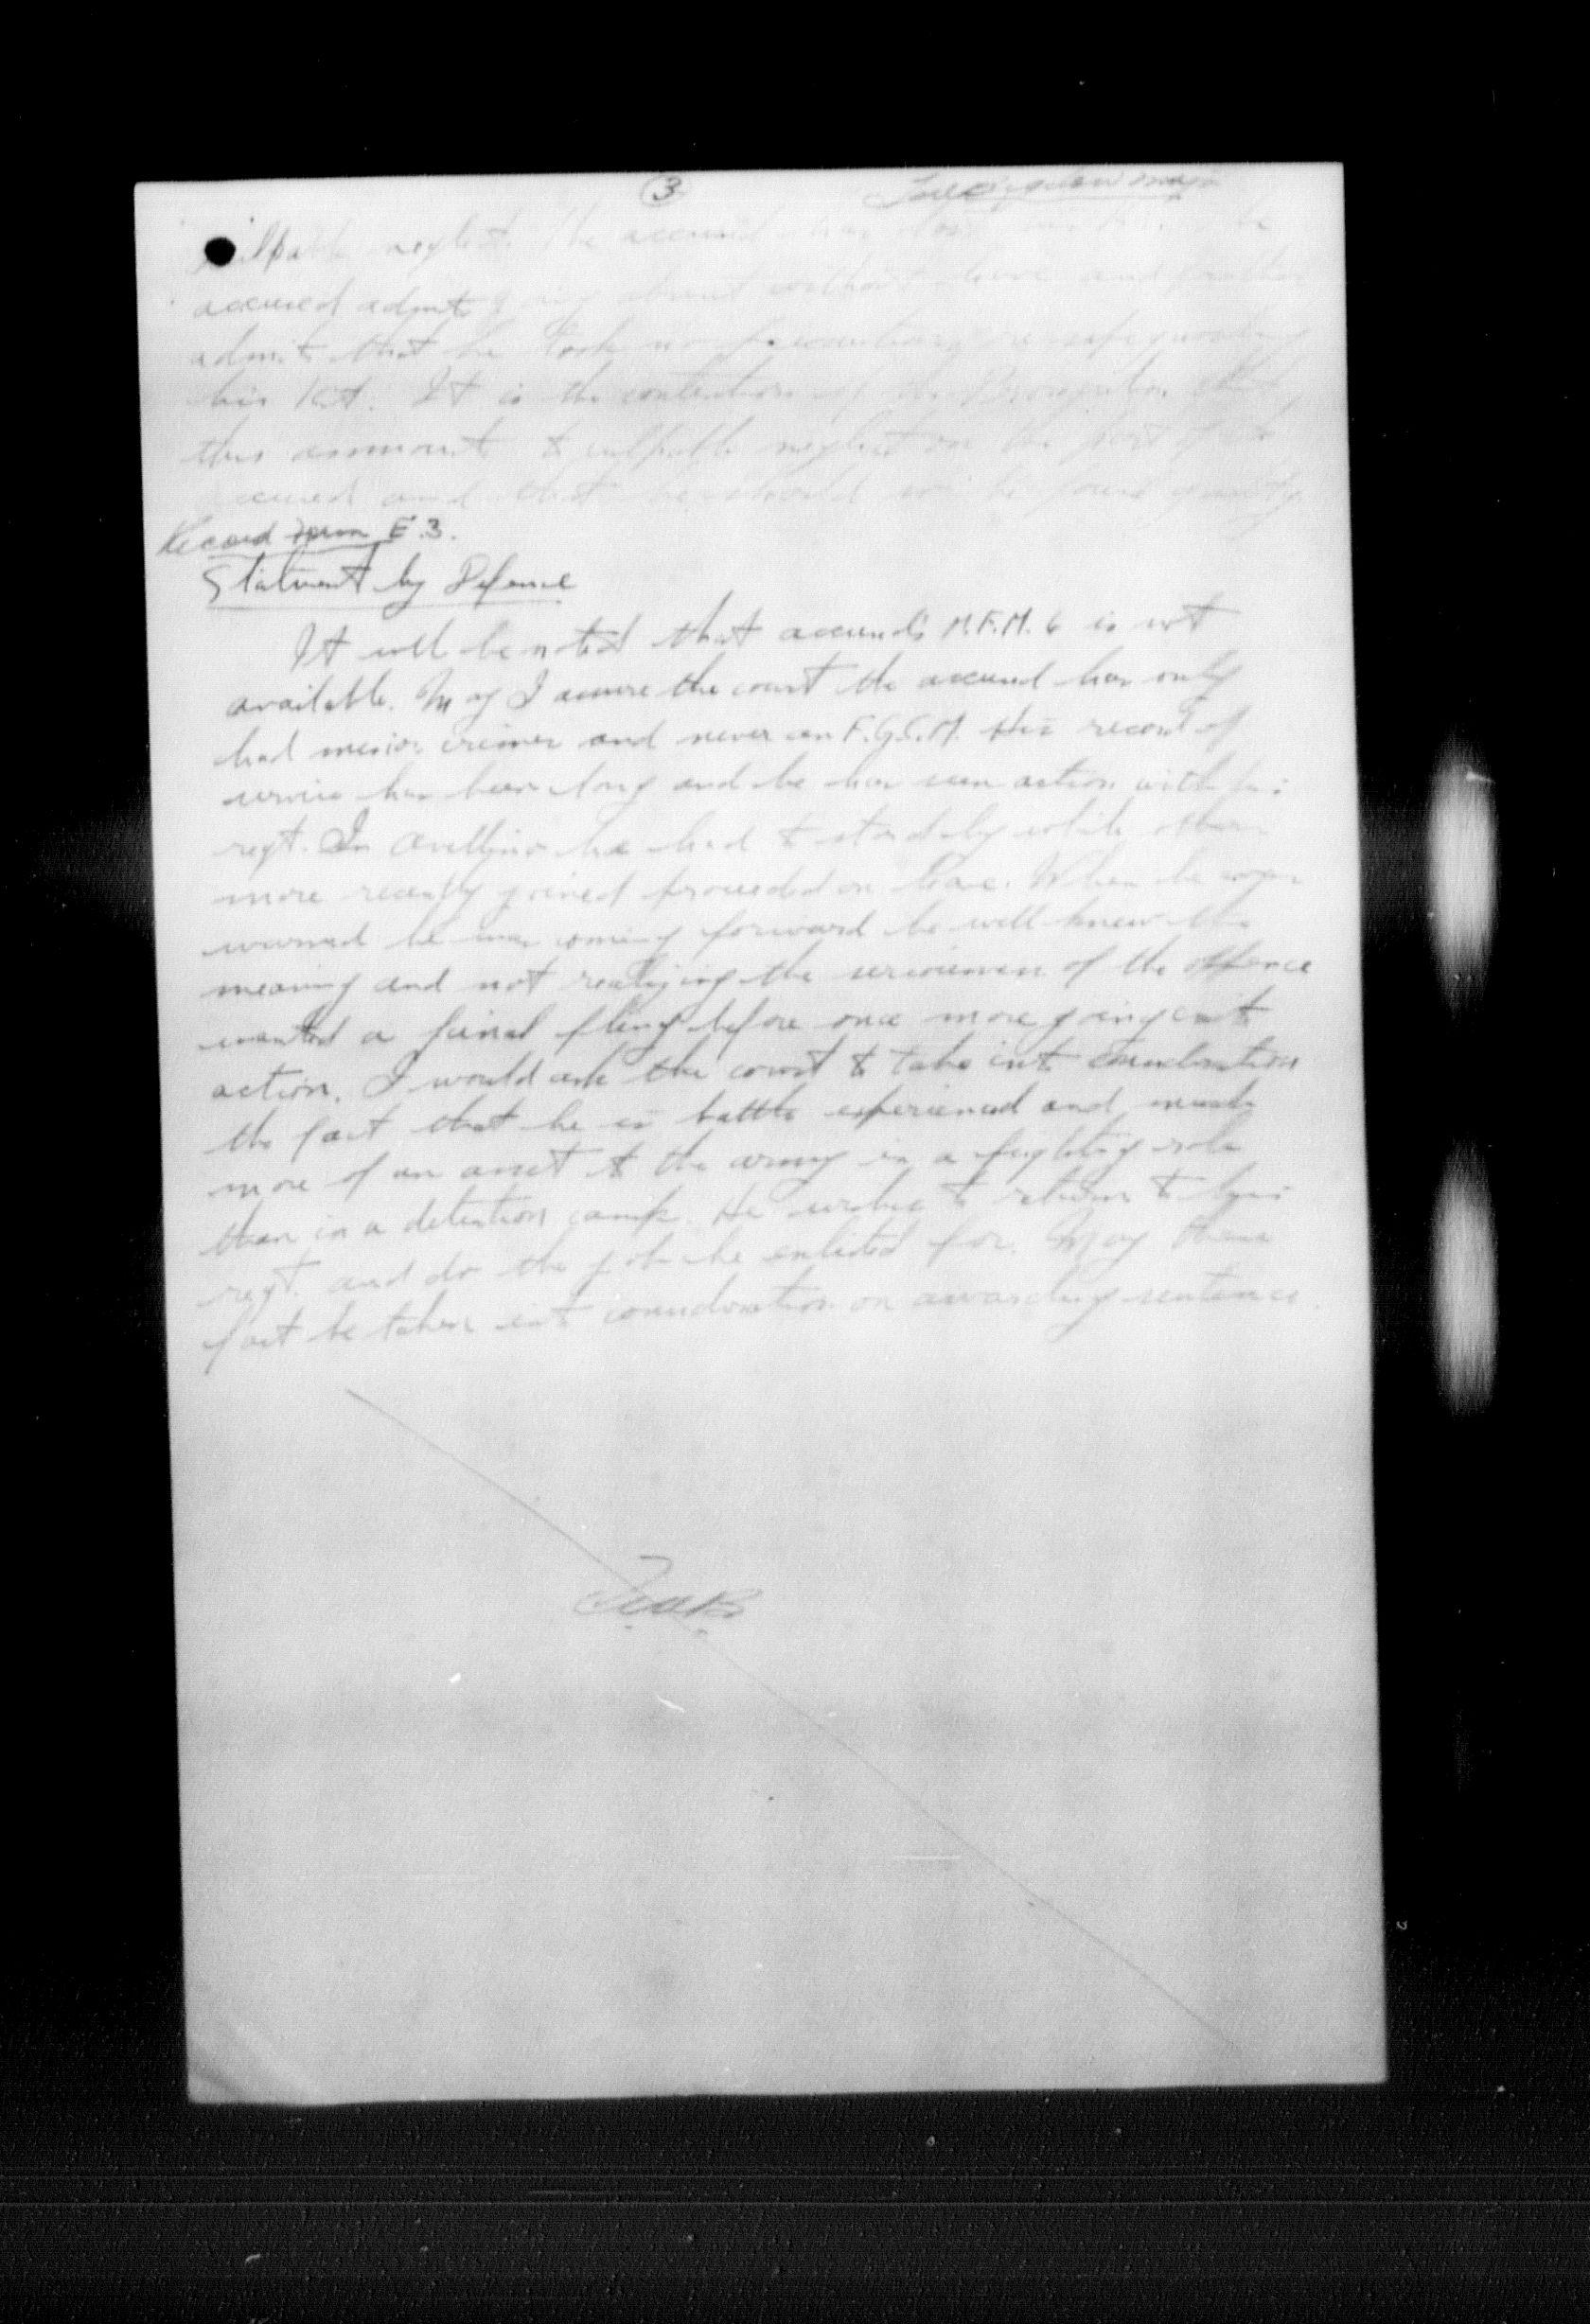 3
neglect. The accused
accused admits going absent without leave and further
admits that he took no precautions re safeguarding
his kit. It is the contention of the Prosecution that
this ammount to culpable neglect on the part of the
accused and that he should be found guilty
Record Form E.3.
Statment by Defence
It will be noted that accused's M.F.M. 6 is not
available. May I assure the court the accused has only
had minor crimes and never an F.G.C.M. His record of
service has been long and he has seen action with his
regt. In Avellino he had to stand by while others
more recently joined proceeded on leave. When he was
warned he was coming forward he well knew the
meaning and not realizing the seriousness of the offence
wanted a final fling before once more going into
action. I would ask the court to take into consideration
the fact that he is battle experienced and much
more of an asset to the army in a fighting role
than in a detention camp. He wishes to return to his
regt. and do the job he enlisted for. May these
fact be taken into consideration on awarding sentence.